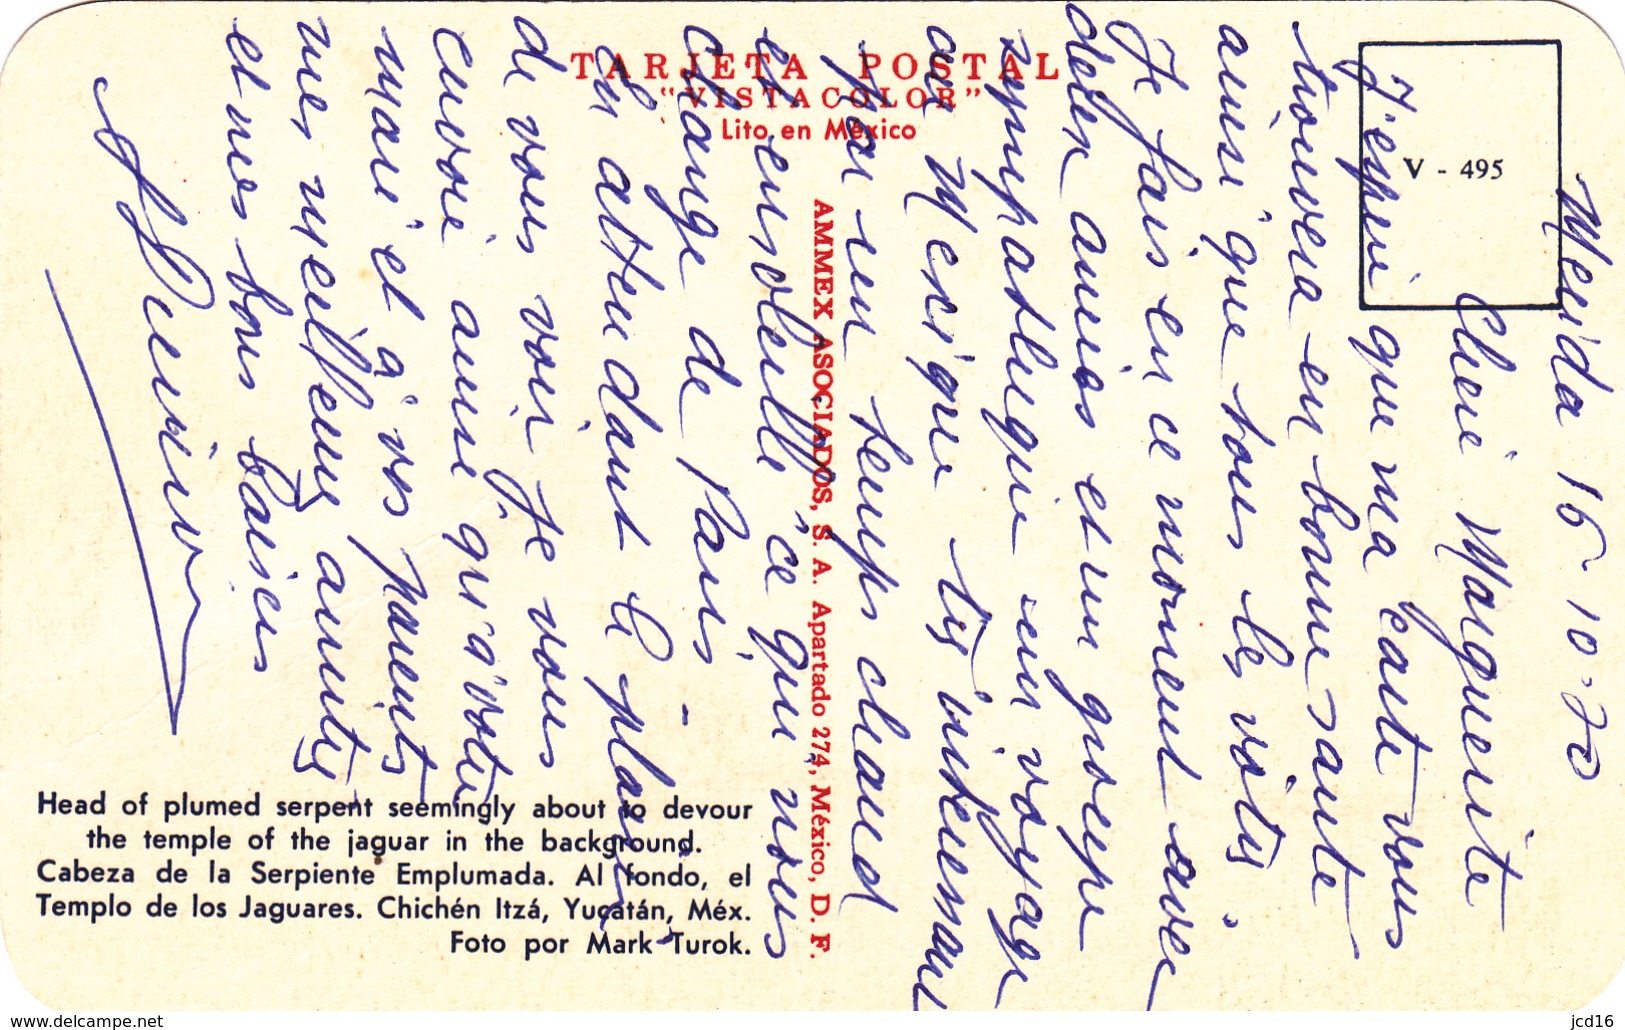 TARJETA POSTAL
"VISTACOLOR"
Lito en México
V - 495
AMMEX ASOCIADOS, S. A. Apartado 274, México, D. F.
Merida 16-10-70
Cheri Marguerite
J'espere que ma carte vous
trouvera en bonne sante
ainsi que tous les votres.
Je fais en ce moment avec
des amies et un groupe
sympathique un voyage
au Mexique tres interessant
par un temps chaud
et ensoleille, ce qui nous
change de Paris -
En attendant le plaisir
de vous voir je vous
envoie ainsi qu'a votre
mari et a vos parents
mes meilleures amities
et nos bons baisers
Head of plumed serpent seemingly about to devour
the temple of the jaguar in the background.
Cabeza de la Serpiente Emplumada. Al fondo, el
Templo de los Jaguares. Chichén Itzá, Yucatán, Méx.
Foto por Mark Turok.
www.delcampe.net
jcd16